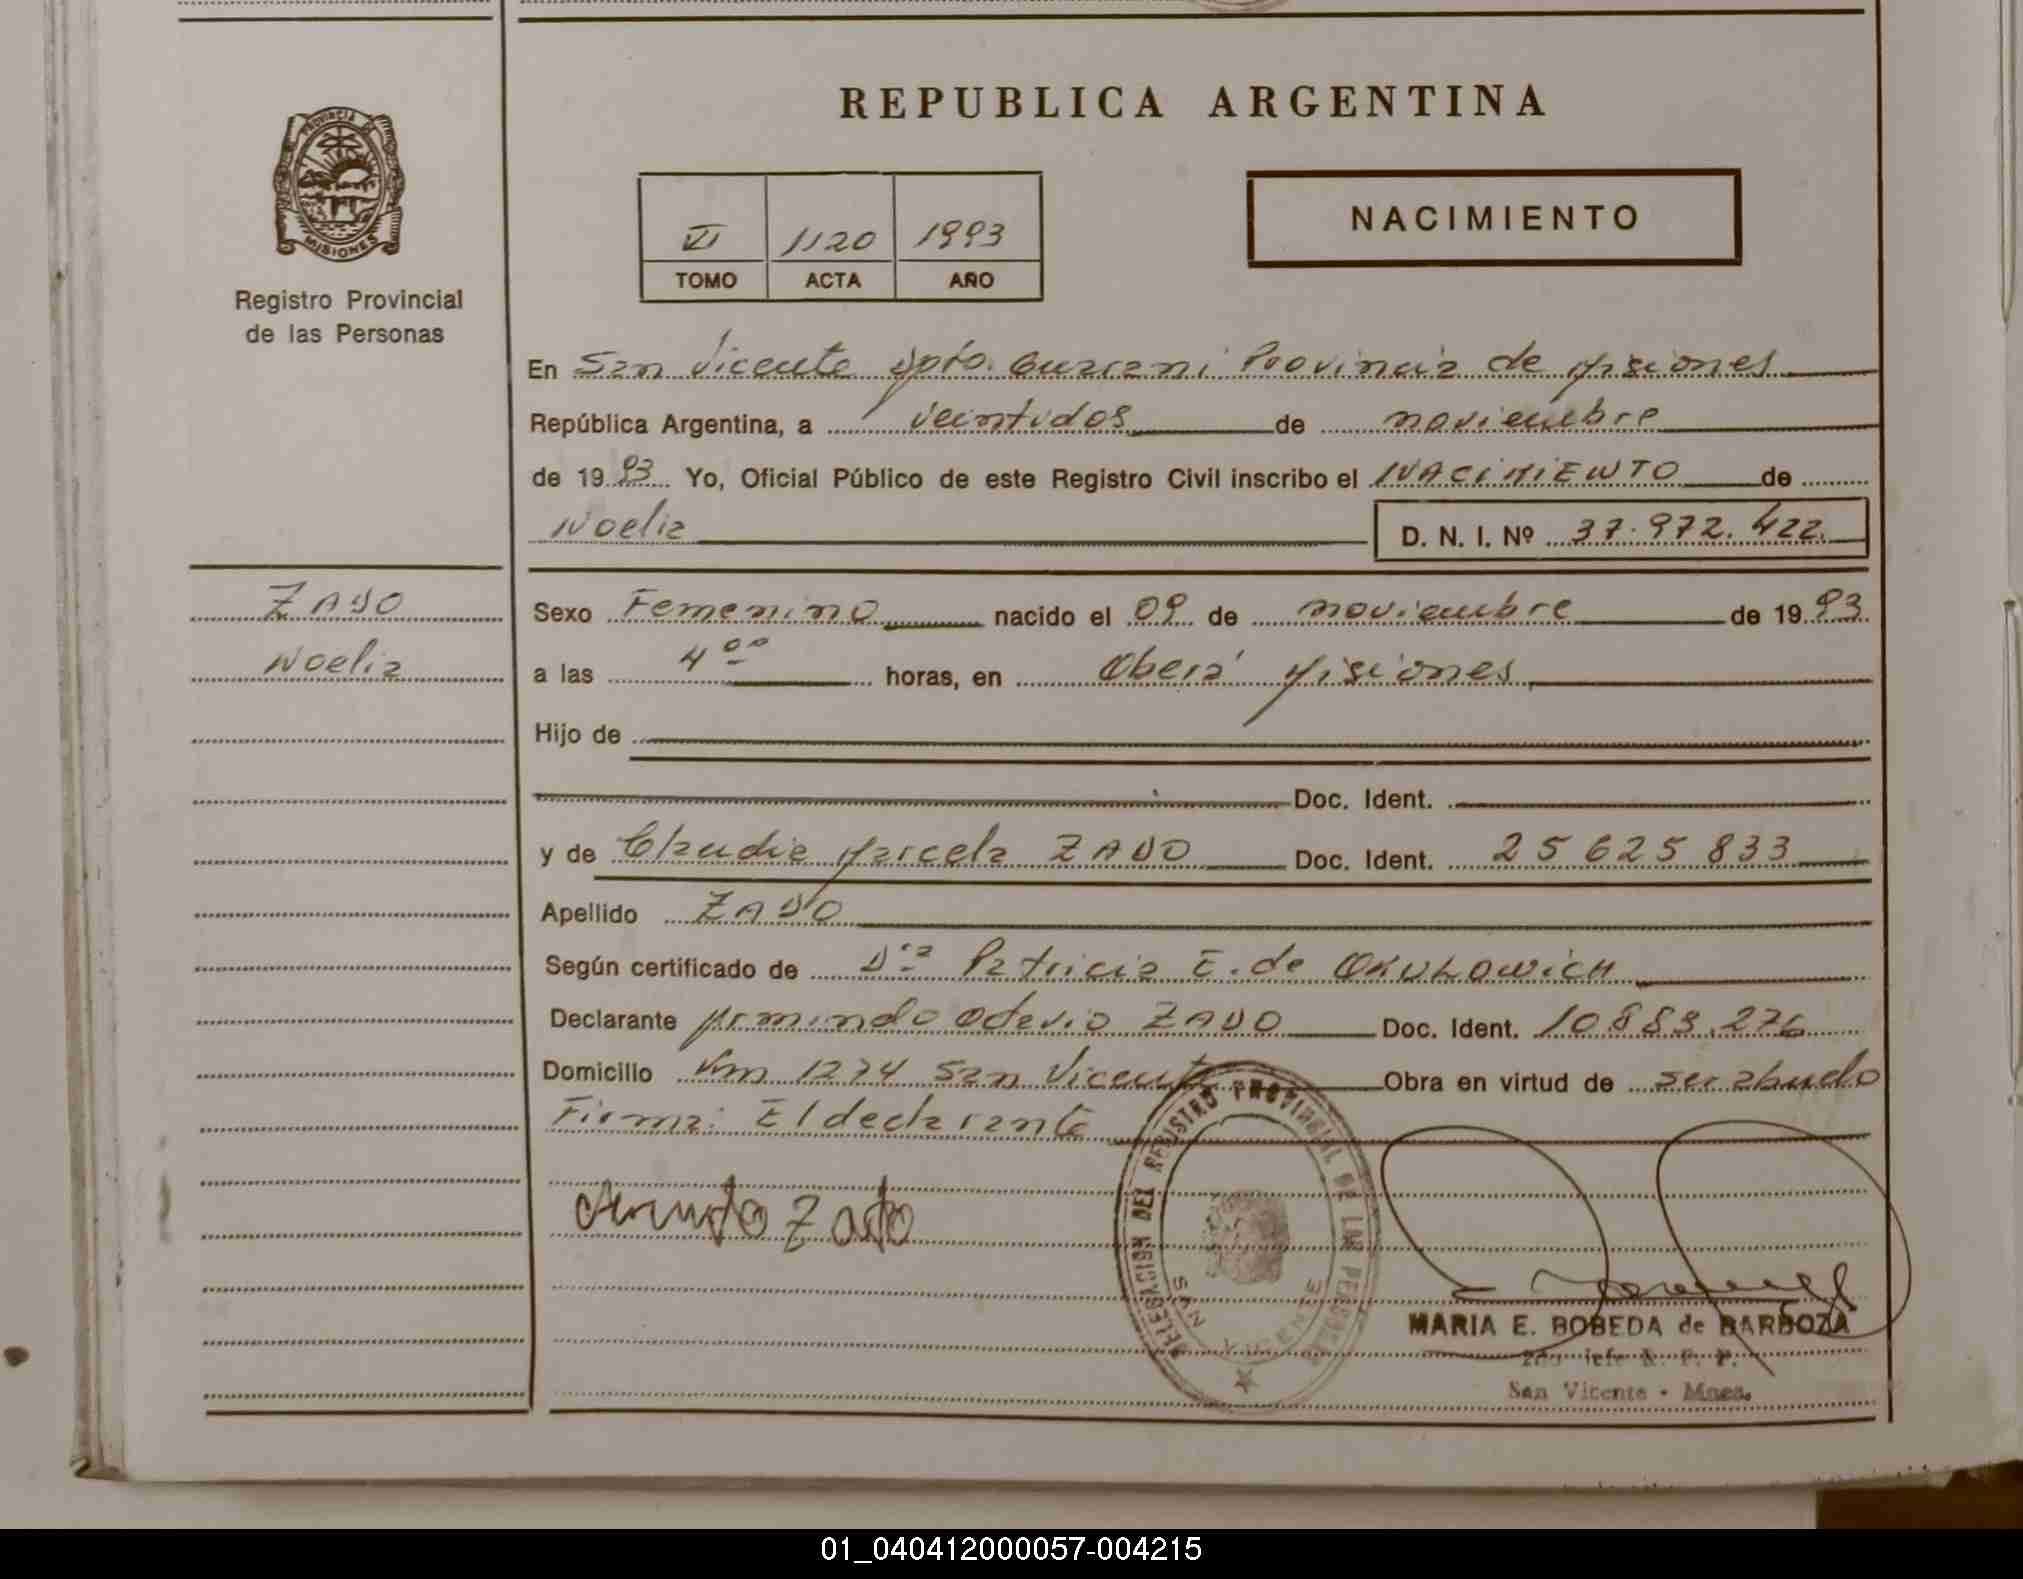 REPUBLICA ARGENTINA
PROVINCIA DE
MISIONES
Registro Provincial
de las Personas
VI 1120 1993
TOMO ACTA AÑO
NACIMIENTO
En San Vicente Dpto. Guarani Provincia de Misiones
República Argentina, a veintidos de noviembre
de 1993 Yo, Oficial Público de este Registro Civil inscribo el NACIMIENTO de
Noelia D. N. I. Nº 37.972.422.
ZADO
Noelia
Sexo Femenino nacido el 09 de noviembre de 1993
a las 4 oo horas, en Oberá Misiones
Hijo de
Doc. Ident.
y de Claudia Marcela ZADO Doc. Ident. 25625833
Apellido ZADO
Según certificado de Dra Patricia E. de OKULOWICH
Declarante Armindo Otavio ZADO Doc. Ident. 10883.276
Domicilio Km 1274 San Vicente Obra en virtud de ser abuelo
Firma: El declarante
DELEGACION DEL REGISTRO PROVINCIAL DE LAS PERSONAS
SAN VICENTE
Zado
MARIA E. BOBEDA de BARBOZA
2do Jefe R. P. P.
San Vicente - Mnes.
01_040412000057-004215